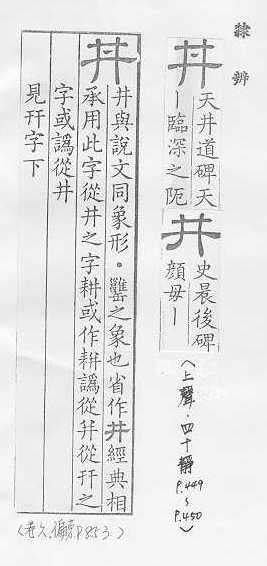 隸辨
丼 天井道碑天
｜臨深之阨
井 史晨後碑
顏母｜
（上聲．四十靜
P.449
～
P.450）
丼 丼與說文同象形．罋之象也省作井經典相
承用此字從井之字耕或作耕譌從幵從开之
字或譌從井
見幵字下
（卷六、偏旁P.853.）